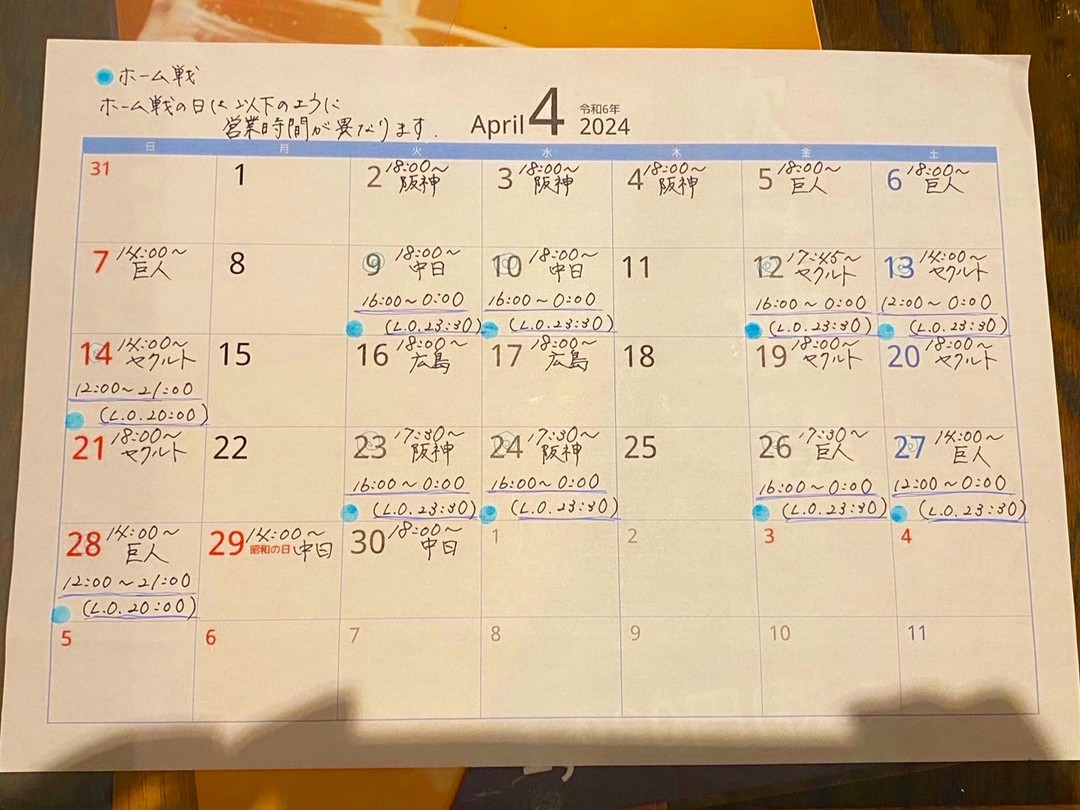 ホーム戦
ホーム戦の日は以下のように
営業時間が異なります.
April 4 令和6年 2024
日 月 火 水 木 金 土
31
1
2 18:00～
阪神
3 18:00～
阪神
4 18:00～
阪神
5 18:00～
巨人
6 18:00～
巨人
7 14:00～
巨人
8
9 18:00～
中日
16:00～0:00
(L.O.23:30)
10 18:00～
中日
16:00～0:00
(L.O.23:30)
11
12 17:45～
ヤクルト
16:00～0:00
(L.O.23:30)
13 14:00～
ヤクルト
12:00～0:00
(L.O.23:30)
14 14:00～
ヤクルト
12:00～21:00
(L.O.20:00)
15
16 18:00～
広島
17 18:00～
広島
18
19 18:00～
ヤクルト
20 18:00～
ヤクルト
21 18:00～
ヤクルト
22
23 17:30～
阪神
16:00～0:00
(L.O.23:30)
24 17:30～
阪神
16:00～0:00
(L.O.23:30)
25
26 17:30～
巨人
16:00～0:00
(L.O.23:30)
27 14:00～
巨人
12:00～0:00
(L.O.23:30)
28 14:00～
巨人
12:00～21:00
(L.O.20:00)
29 14:00～
昭和の日 中日
30 18:00～
中日
1
2
3
4
5
6
7
8
9
10
11